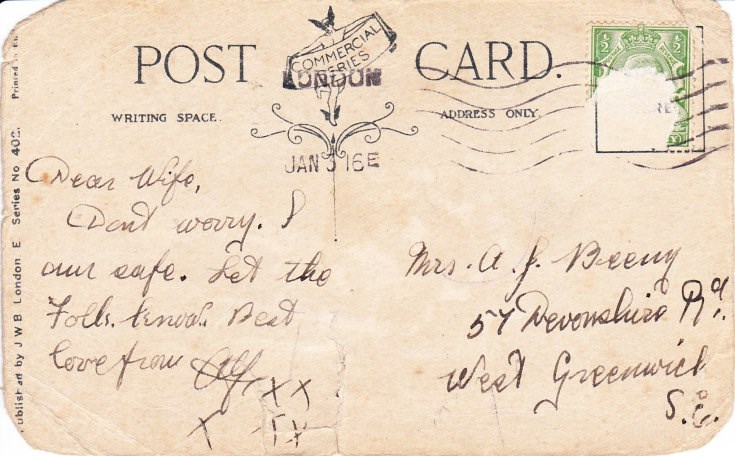 POST CARD.
COMMERCIAL
SERIES
LONDON
WRITING SPACE.
ADDRESS ONLY.
JAN 3 16 E
½ ½
Dear Wife,
Dont worry. I
am safe. Let the
Folks know. Best
love from Alf
x x
x
Mrs. A. J. Beeny
57 Devonshire Rd.
West Greenwich
S.E.
Published by J W B London E Series No 402. Printed in